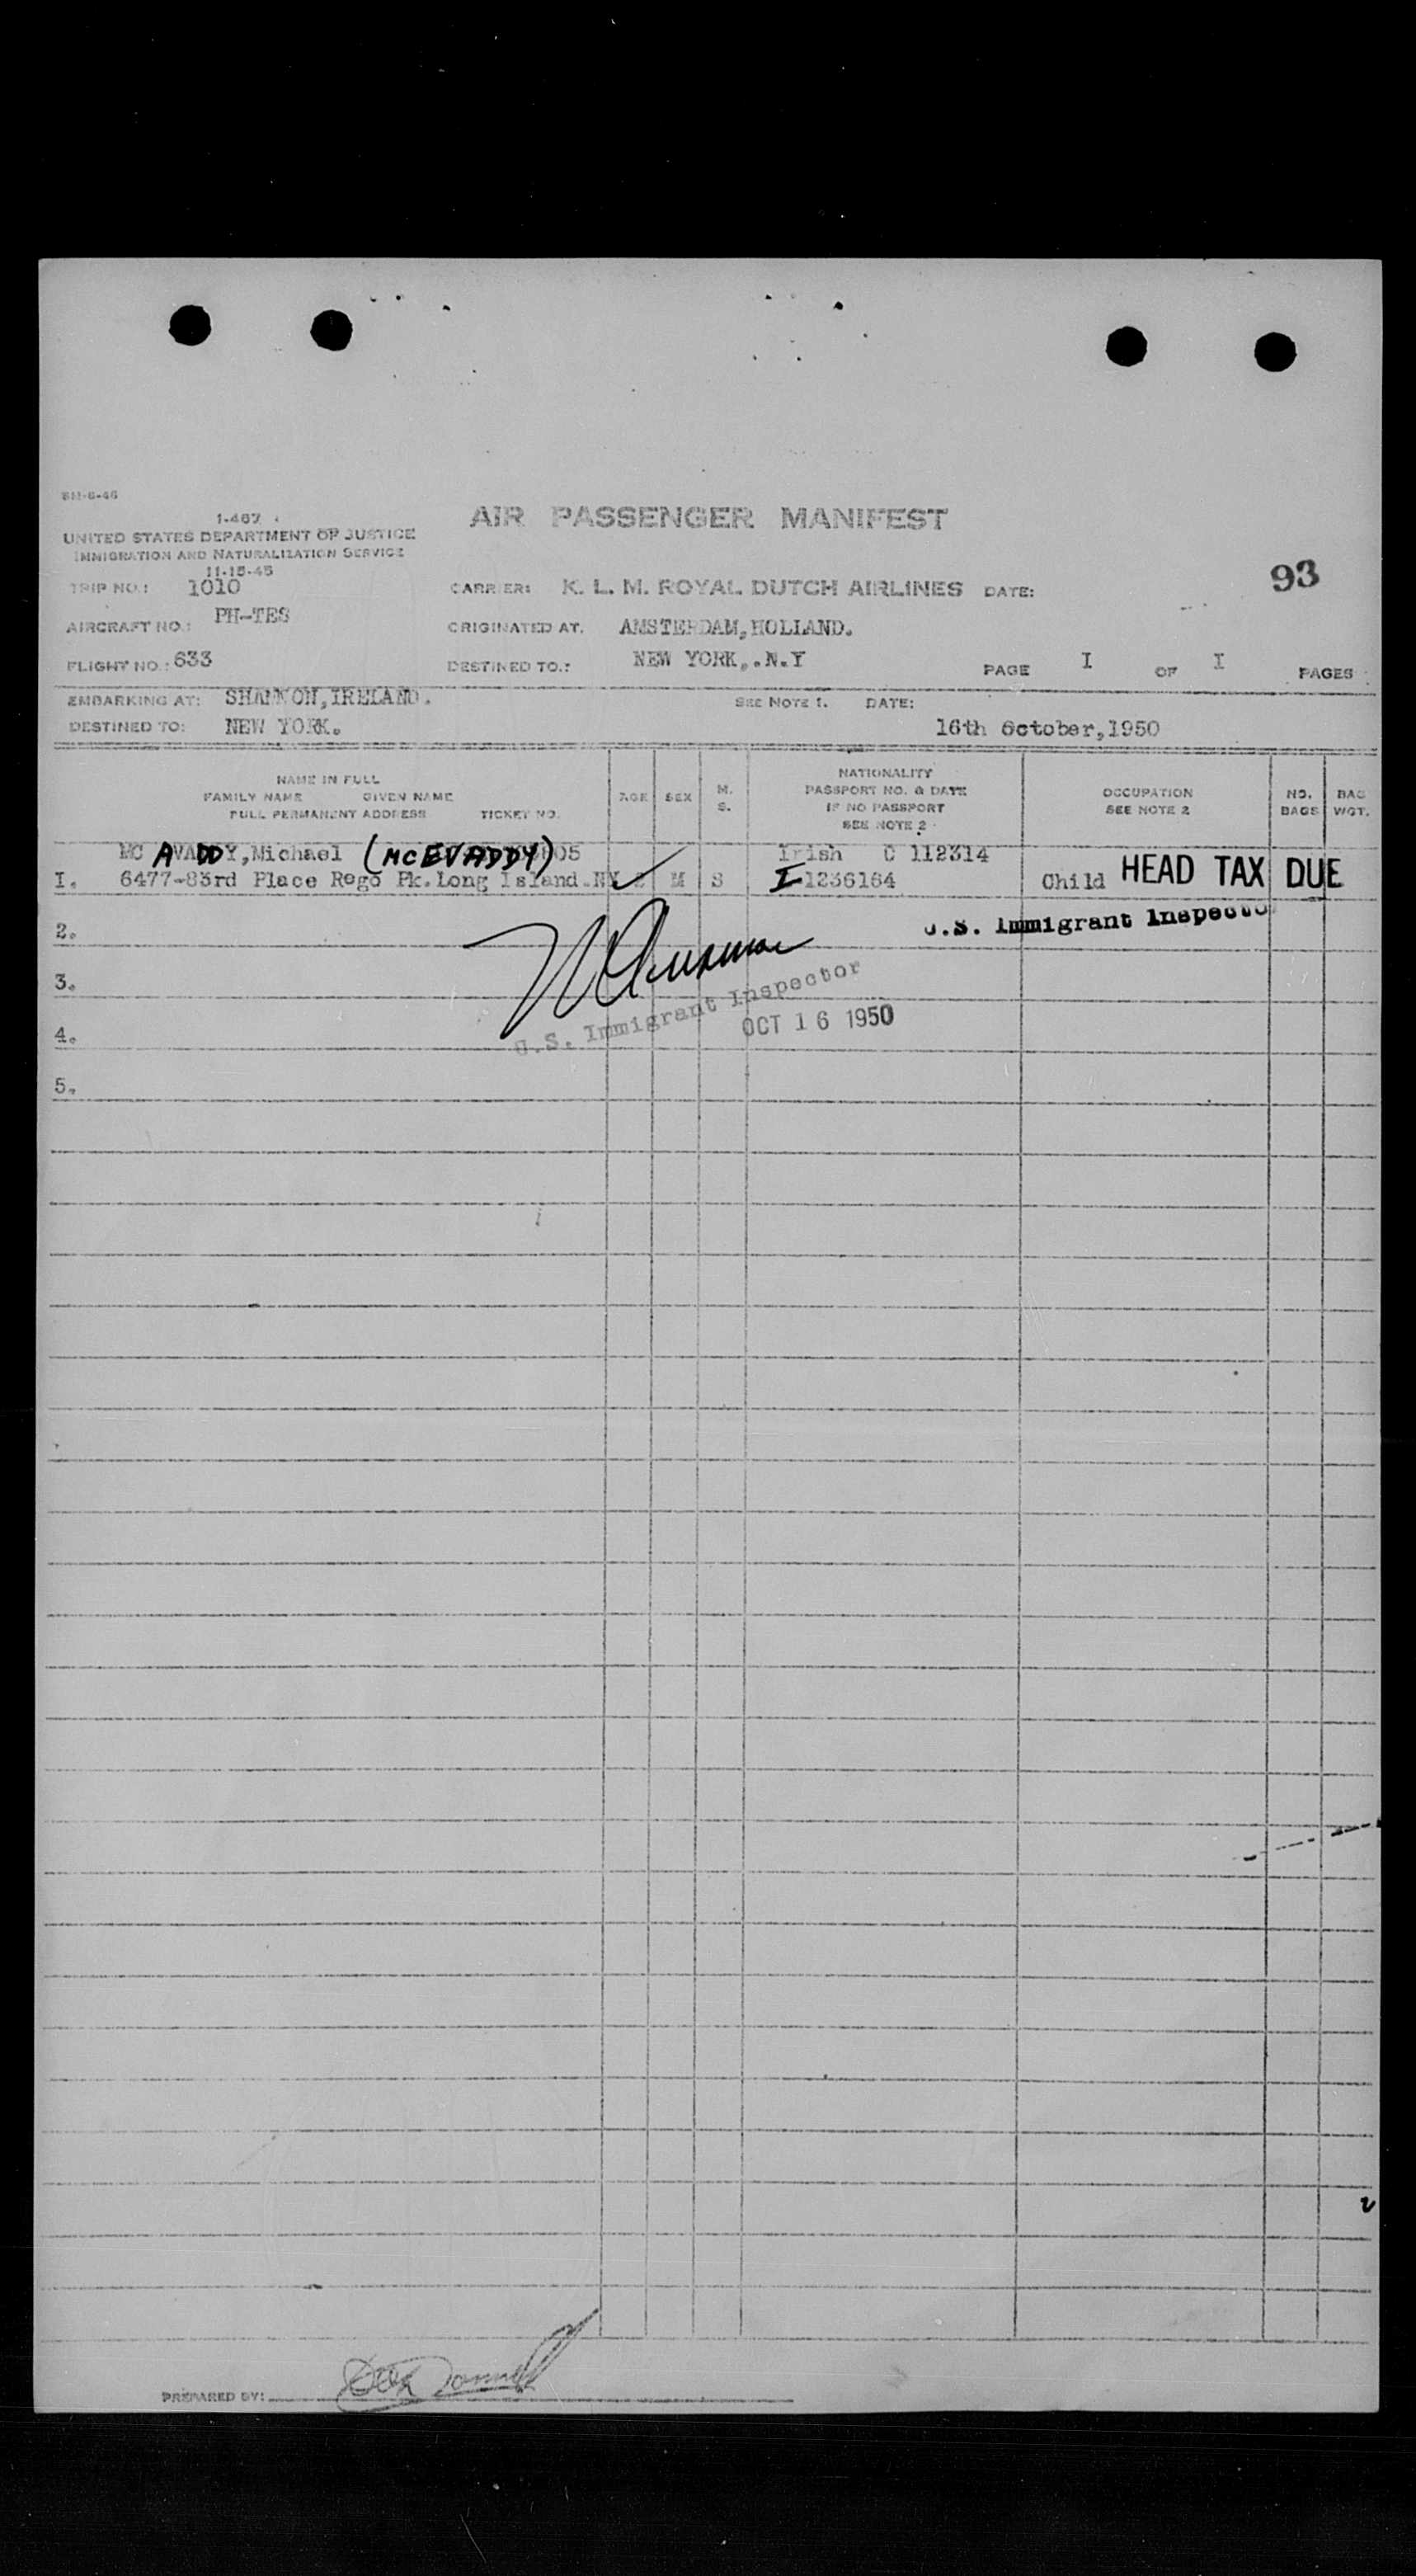 5M-6-46
I-467
UNITED STATES DEPARTMENT OF JUSTICE
IMMIGRATION AND NATURALIZATION SERVICE
11-15-45
AIR PASSENGER MANIFEST
93
TRIP NO.: 1010 CARRIER: K. L. M. ROYAL DUTCH AIRLINES DATE:
AIRCRAFT NO.: PH-TES ORIGINATED AT. AMSTERDAM,HOLLAND.
FLIGHT NO.: 633 DESTINED TO.: NEW YORK,.N.Y PAGE I OF I PAGES
EMBARKING AT: SHANNON,IRELAND. SEE NOTE 1. DATE:
DESTINED TO: NEW YORK. 16th October,1950
NAME IN FULL
FAMILY NAME GIVEN NAME
FULL PERMANENT ADDRESS TICKET NO.
AGE SEX M. S.
NATIONALITY
PASSPORT NO. & DATE
IF NO PASSPORT
SEE NOTE 2
OCCUPATION
SEE NOTE 2
NO. BAGS
BAG WGT.
MC AVADDY,Michael (McEVADDY) 05 Irish C 112314
I. 6477-83rd Place Rego Pk.Long Island.NY M S I 1236164 Child HEAD TAX DUE
2. U.S. Immigrant Inspector
3.
U.S. Immigrant Inspector
4. OCT 16 1950
5.
PREPARED BY: